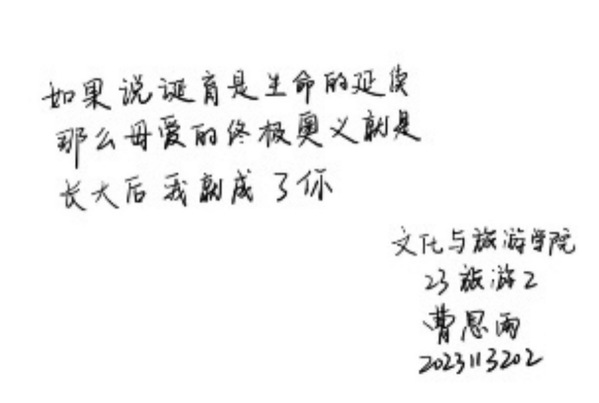 如果说诞育是生命的延续
那么母爱的终极奥义就是
长大后我就成了你
文化与旅游学院
23旅游2
曹思雨
2023113202